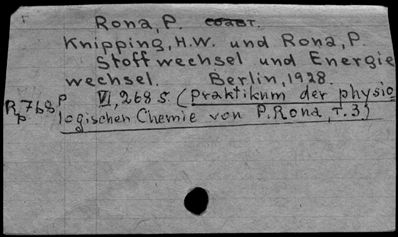 Rona, P. соавт.
Knipping, H.W. und Rona, P.
Stoffwechsel und Energie
wechsel. Berlin, 1928.
R 768 p VI, 268 S. (Praktikum der physio
p logischen Chemie von P. Rona, T. 3)